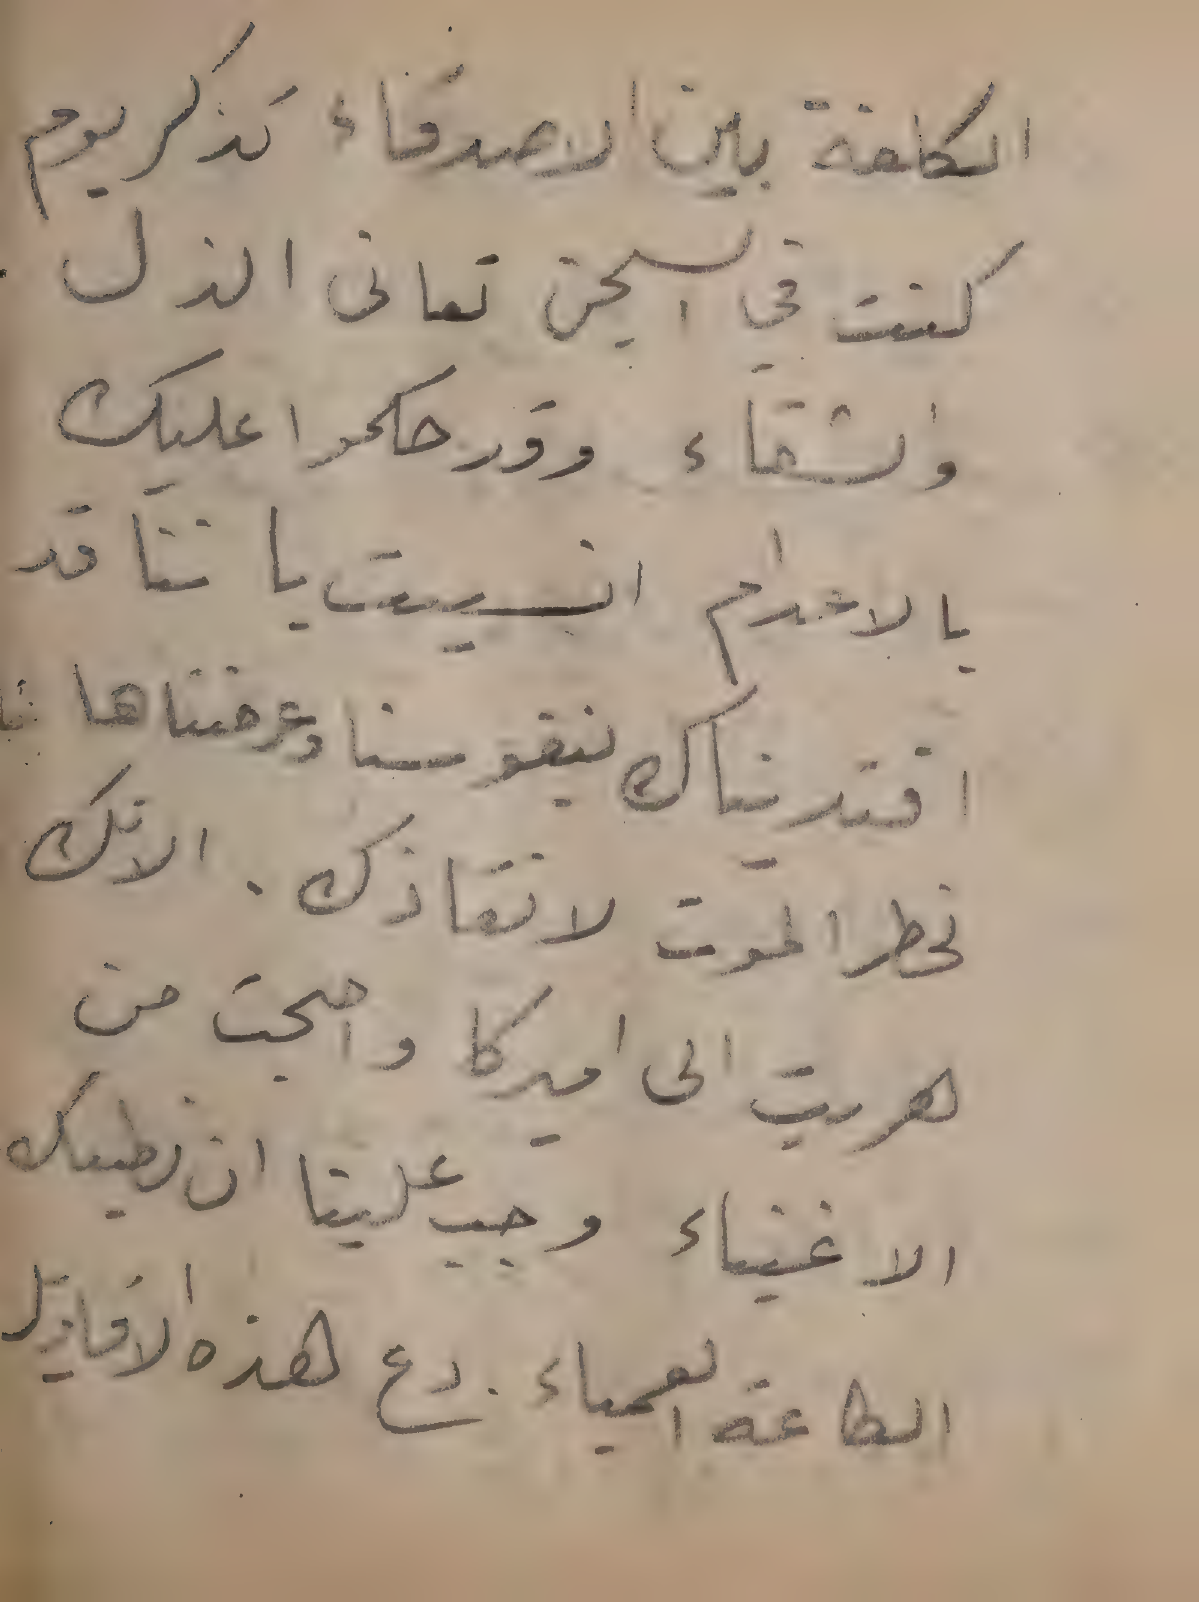 الكلفة بين الاصدقاء تذكر يوم
كنت في السجن تعاني الذل
والشقاء وقد حكموا عليك
بالاعدام انسيت باننا قد
افتديناك بنفوسنا وعرضناها
لخطر الموت لانقاذك . الانك
هربت الى اميركا واصبحت من
الاغنياء وجب علينا ان نطيعك
الطاعة العمياء . دع هذه الاقاويل